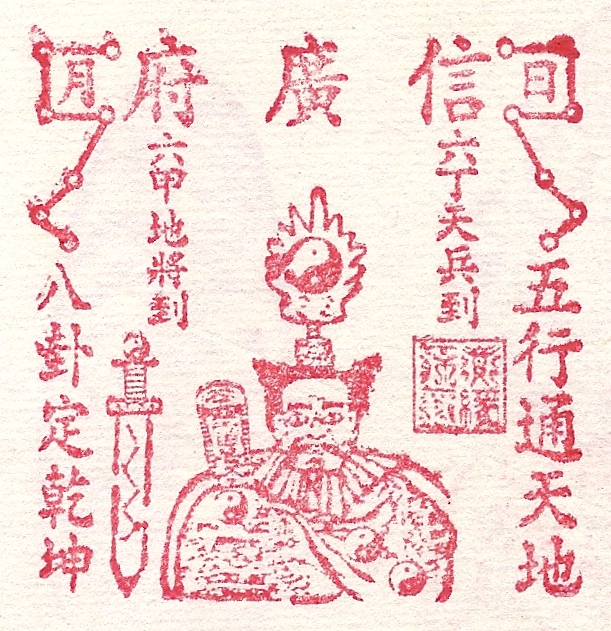 信廣府
日
五行通天地
六丁天兵到
六甲地將到
月
八卦定乾坤